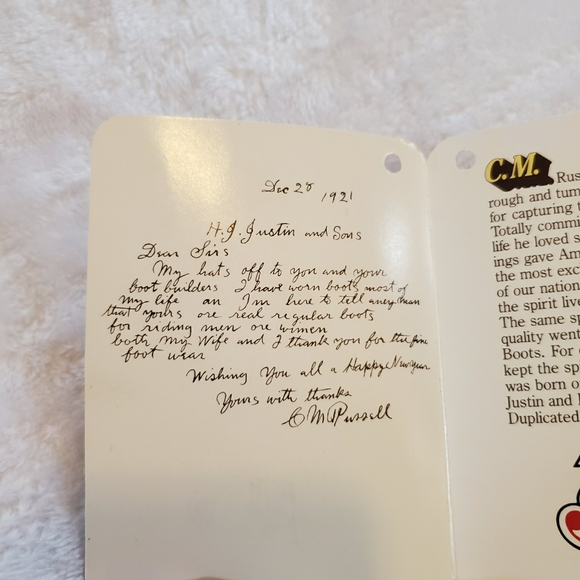 Dec 28
1921
H.J. Justin and Sons
Dear Sirs
My hats off to you and your
boot builders I have worn boots most of
my life an Im here to tell aney man
that yours are real regular boots
for riding men ore women
both my Wife and I thank you for the fine
foot wear
Wishing You all a Happy New year
Yours with thanks
C M Russell
C.M. Rus
rough and tum
for capturing t
Totally commi
life he loved s
ings gave Am
the most exc
of our nation
the spirit live
The same sp
quality went
Boots. For
kept the sp
was born o
Justin and
Duplicated